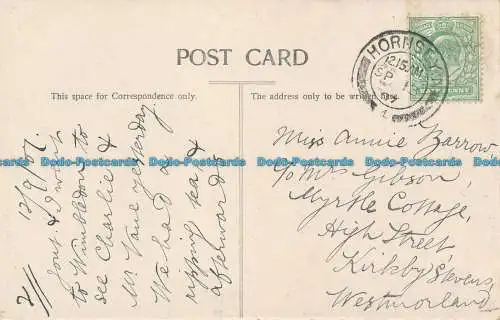 POST CARD
This space for Correspondence only.
The address only to be written here.
HORNSEY.N
12.15 PM
SP
HALFPENNY
2/
12/9/07.
Gont. & I went
to Wimbledon to
see Charlie &
Mr Vane yesterday
We had a
ripping tea &
afterwards
Miss Annie Barrow
To Mr Gibson,
Myrtle Cottage,
High Street
Kirkby Stevens,
Westmorland.
Dodo-Postcards Dodo-Postcards Dodo-Postcards Dodo-Postcards Dodo-Postcards